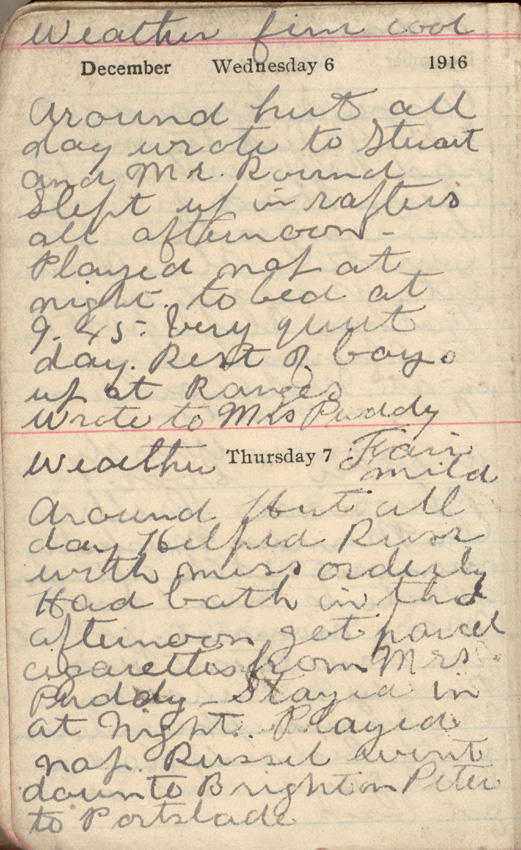 Weather fine cool
December Wednesday 6 1916
Around hut all
day wrote to Stuart
and Mr. Round
Slept up in rafters
all afternoon -
Played nap at
night. to bed at
9.45- Very quiet
day. Rest of boys
up at Ranges
Wrote to Mrs Puddy
Weather Thursday 7 Fair
mild
Around Hut all
day Helped Russ
with mess orderly
Had bath in the
afternoon get parcel
cigarettes from Mrs.
Puddy - Stayed in
at Night. Played
nap. Russel went
down to Brighton Peter
to Portslade